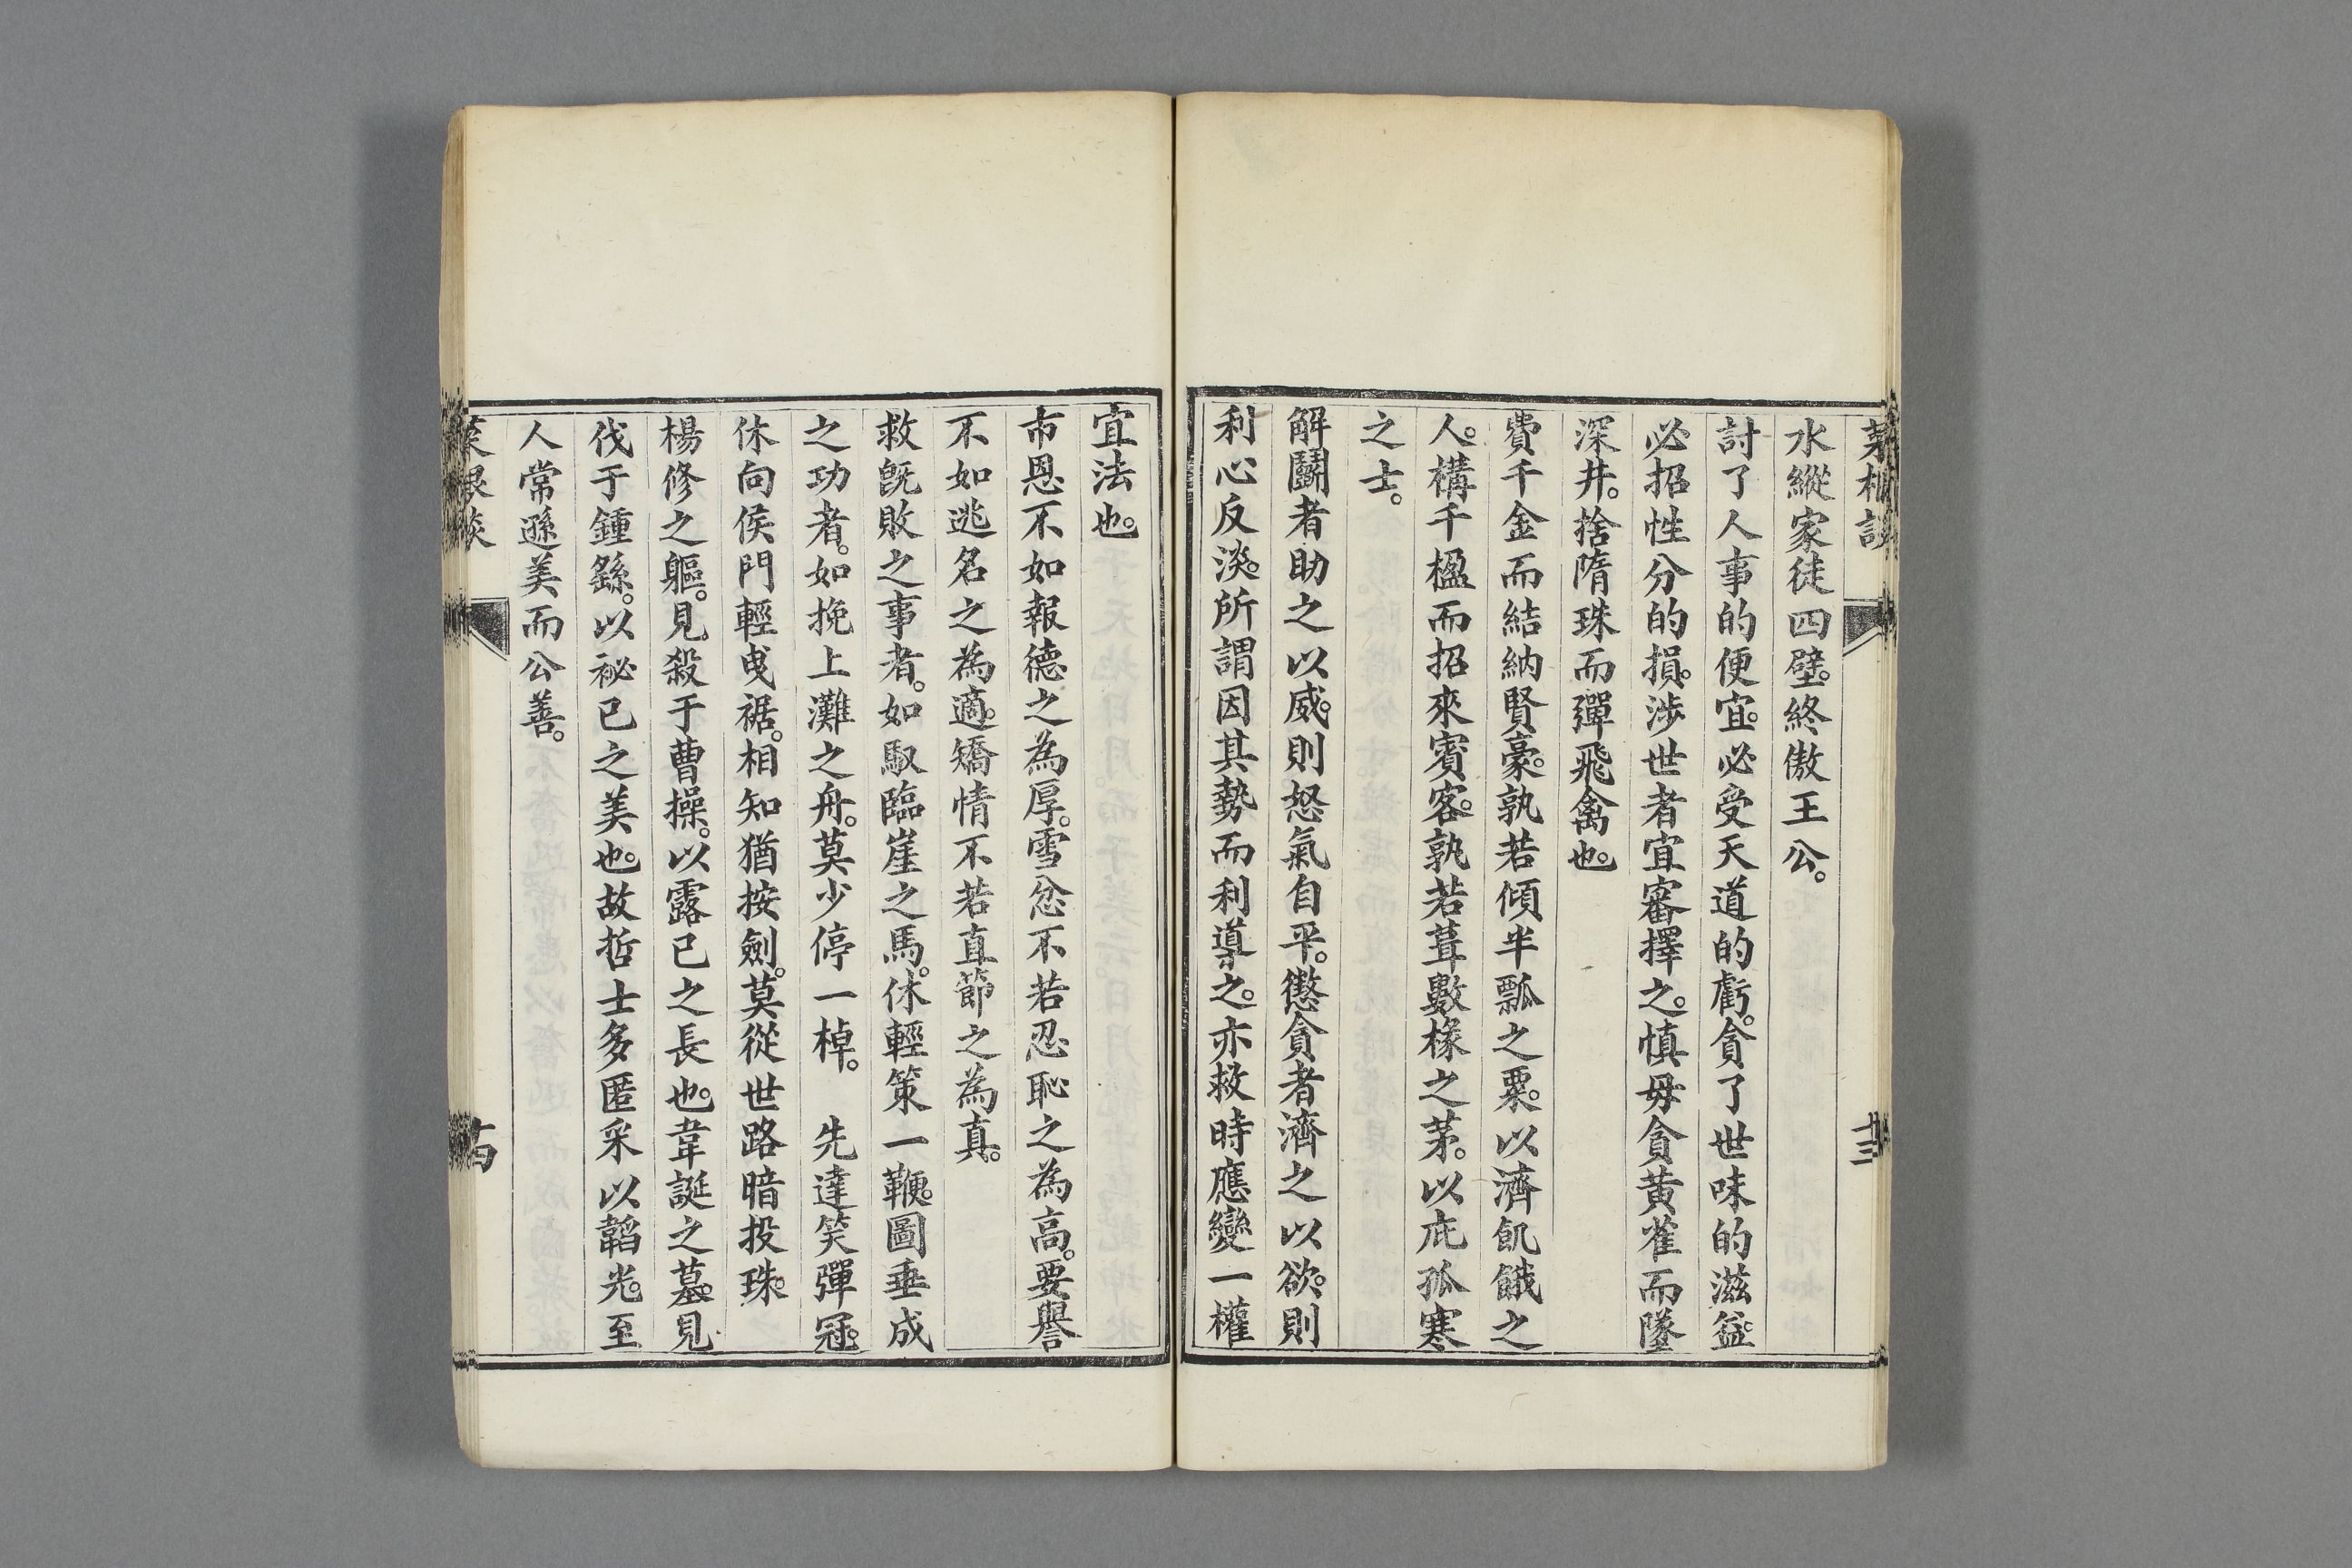 菜根談
十三
水縱家徒四壁。終傲王公。
討了人事的便宜。必受天道的虧。貪了世味的滋益。
必招性分的損。涉世者宜審擇之。慎毋貪黄雀而墜
深井。捨隋珠而彈飛禽也。
費千金而結納賢豪。孰若傾半瓢之粟。以濟飢餓之
人。構千楹而招來賓客。孰若葺數椽之茅。以庇孤寒
之士。
解鬭者助之以威。則怒氣自平。懲貪者濟之以欲。則
利心反淡。所謂因其勢而利導之。亦救時應變一權
宜法也。
市恩不如報德之為厚。雪忿不若忍恥之為高。要譽
不如逃名之為適。矯情不若直節之為真。
救既敗之事者。如馭臨崖之馬。休輕策一鞭。圖垂成
之功者。如挽上灘之舟。莫少停一棹。　先達笑彈冠。
休向侯門輕曵裾。相知猶按劍。莫從世路暗投珠。
楊修之軀。見殺于曹操。以露己之長也。韋誕之墓。見
伐于鍾繇。以祕己之美也。故哲士多匿采以韜光。至
人常遜美而公善。
菜根談
十四